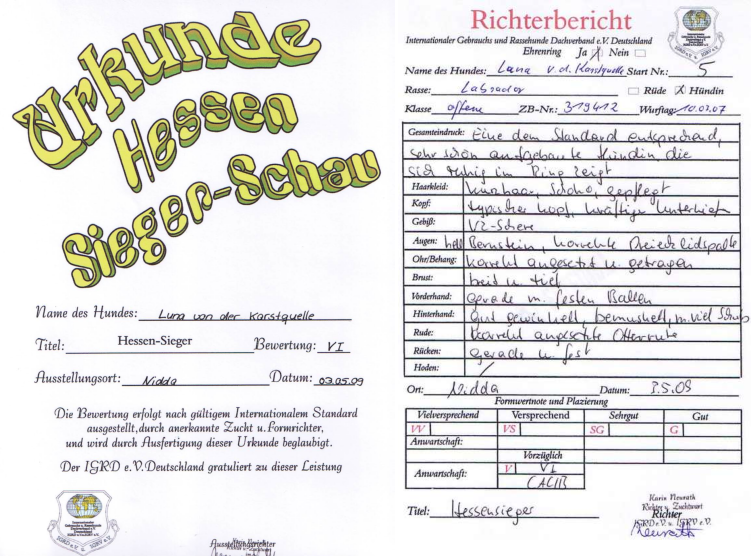 Urkunde
Hessen
Sieger-Schau
Name des Hundes: Luna von der Karstquelle
Titel: Hessen-Sieger Bewertung: V1
Ausstellungsort: Nidda Datum: 03.05.09
Die Bewertung erfolgt nach gültigem Internationalem Standard
ausgestellt, durch anerkannte Zucht u. Formrichter,
und wird durch Ausfertigung dieser Urkunde beglaubigt.
Der IGRD e.V. Deutschland gratuliert zu dieser Leistung
Ausstellungsrichter
Richterbericht
Internationaler Gebrauchs und Rassehunde Dachverband e.V. Deutschland
Ehrenring Ja X Nein
Name des Hundes: Luna v. d. Karstquelle Start Nr.: 5
Rasse: Labrador Rüde X Hündin
Klasse offene ZB-Nr.: 319412 Wurftag: 10.03.07
Gesamteindruck: Eine dem Standard entsprechend,
sehr schön aufgebaute Hündin die
sich ruhig im Ring zeigt
Haarkleid: kurzhaar, Schoko, gepflegt
Kopf: typischer Kopf, kräftiger Unterkiefer
Gebiß: VZ-Schere
Augen: hell Bernstein, korrekte Dreiecklidspalte
Ohr/Behang: korrekt angesetzt u. getragen
Brust: breit u. tief
Vorderhand: gerade m. festen Ballen
Hinterhand: Gut gewinkelt, bemuskelt, m. viel Schub
Rude: korrekt angesetzte Otterrute
Rücken: gerade u. fest
Hoden: /
Ort: Nidda Datum: 3.5.09
Formwertnote und Plazierung
Vielversprechend Versprechend Sehrgut Gut
VV VS SG G
Anwartschaft:
Vorzüglich
V V1
Anwartschaft: CACIB
Titel: Hessensieger
Karin Neurath
Richter u. Zuchtwart
Richter
IGRD e.V. u. IGRV e.V.
Neurath